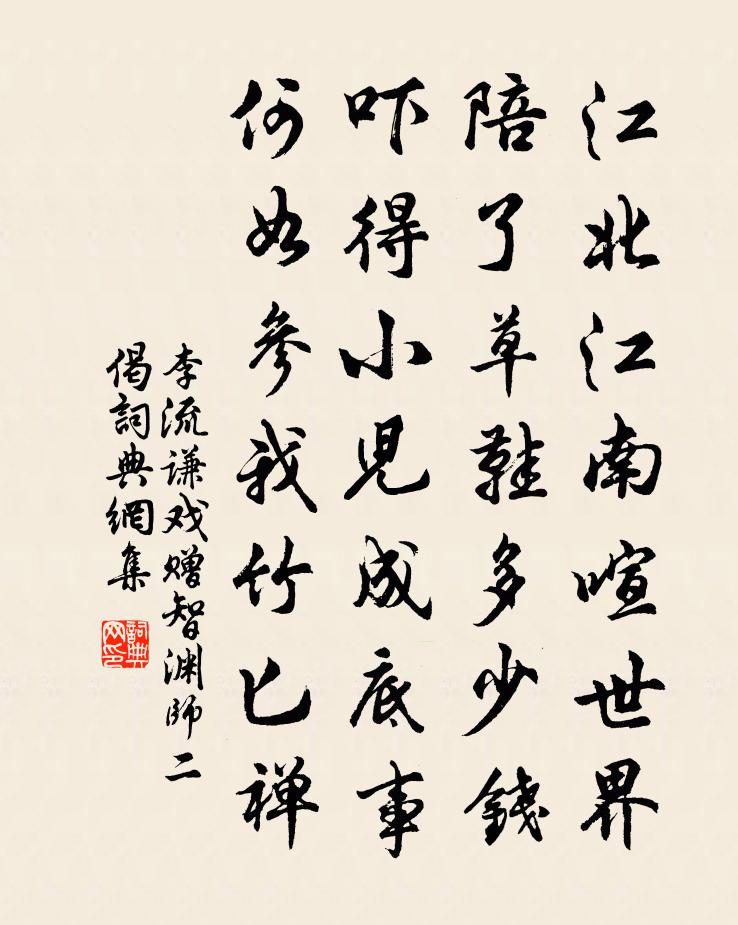 江北江南喧世界
陪了草鞋多少錢
吓得小児成底事
何如參我竹匕禅
李流谦戏赠智渊师二
偈詞典網集
詞典
网印